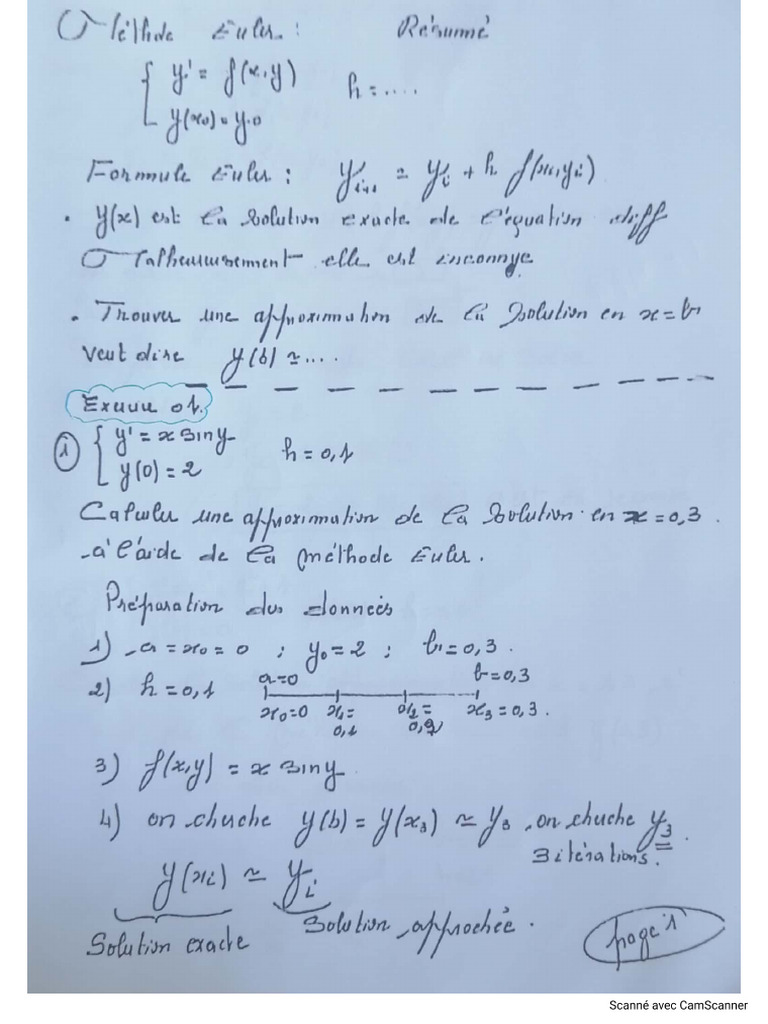 Méthode Euler : Résumé
{ y' = f(x,y)
y(x0) = y0 h = ....
Formule Euler : yi+1 = yi + h f(xi,yi)
. y(x) est la solution exacte de l'équation diff
Malheureusement elle est inconnye
. Trouver une approximation de la solution en x = b
veut dire y(b) ≃ ....
Exercice 01.
① { y' = x sin y
y(0) = 2 h = 0,1
Calculer une approximation de la solution en x = 0,3 .
à l'aide de la méthode Euler .
Préparation des données
1) a = x0 = 0 ; y0 = 2 ; b = 0,3 .
2) h = 0,1 a=0 b=0,3
x0=0 x1= 0,1 x2= 0,2 x3 = 0,3 .
3) f(x,y) = x sin y
4) on cherche y(b) = y(x3) ≃ y3 , on cherche y3 .
3 itérations .
y(xi) ≃ yi
Solution exacte Solution approchée .
page 1
Scanné avec CamScanner